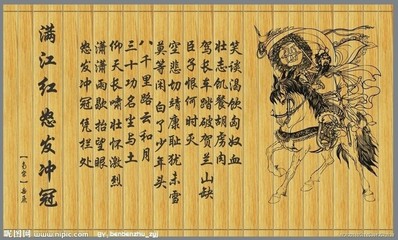 满江红 怒发冲冠
【南宋】岳飞
怒发冲冠凭栏处
潇潇雨歇抬望眼
仰天长啸壮怀激烈
三十功名尘与土
八千里路云和月
莫等闲白了少年头
空悲切靖康耻犹未雪
臣子恨何时灭
驾长车踏破贺兰山缺
壮志饥餐胡虏肉
笑谈渴饮匈奴血
昵图网 www.nipic.com